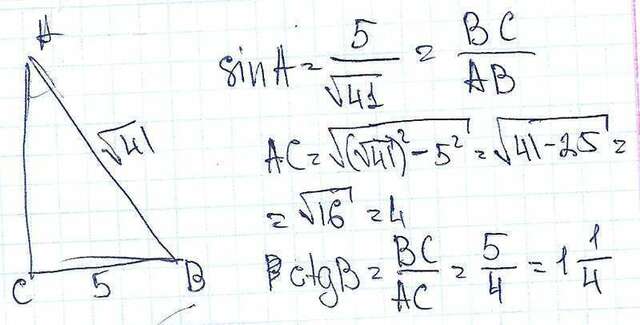 A
√41
C 5 B
sinA = 5/√41 = BC/AB
AC = √((√41)² - 5²) = √(41 - 25) =
= √16 = 4
ctgB = BC/AC = 5/4 = 1 1/4